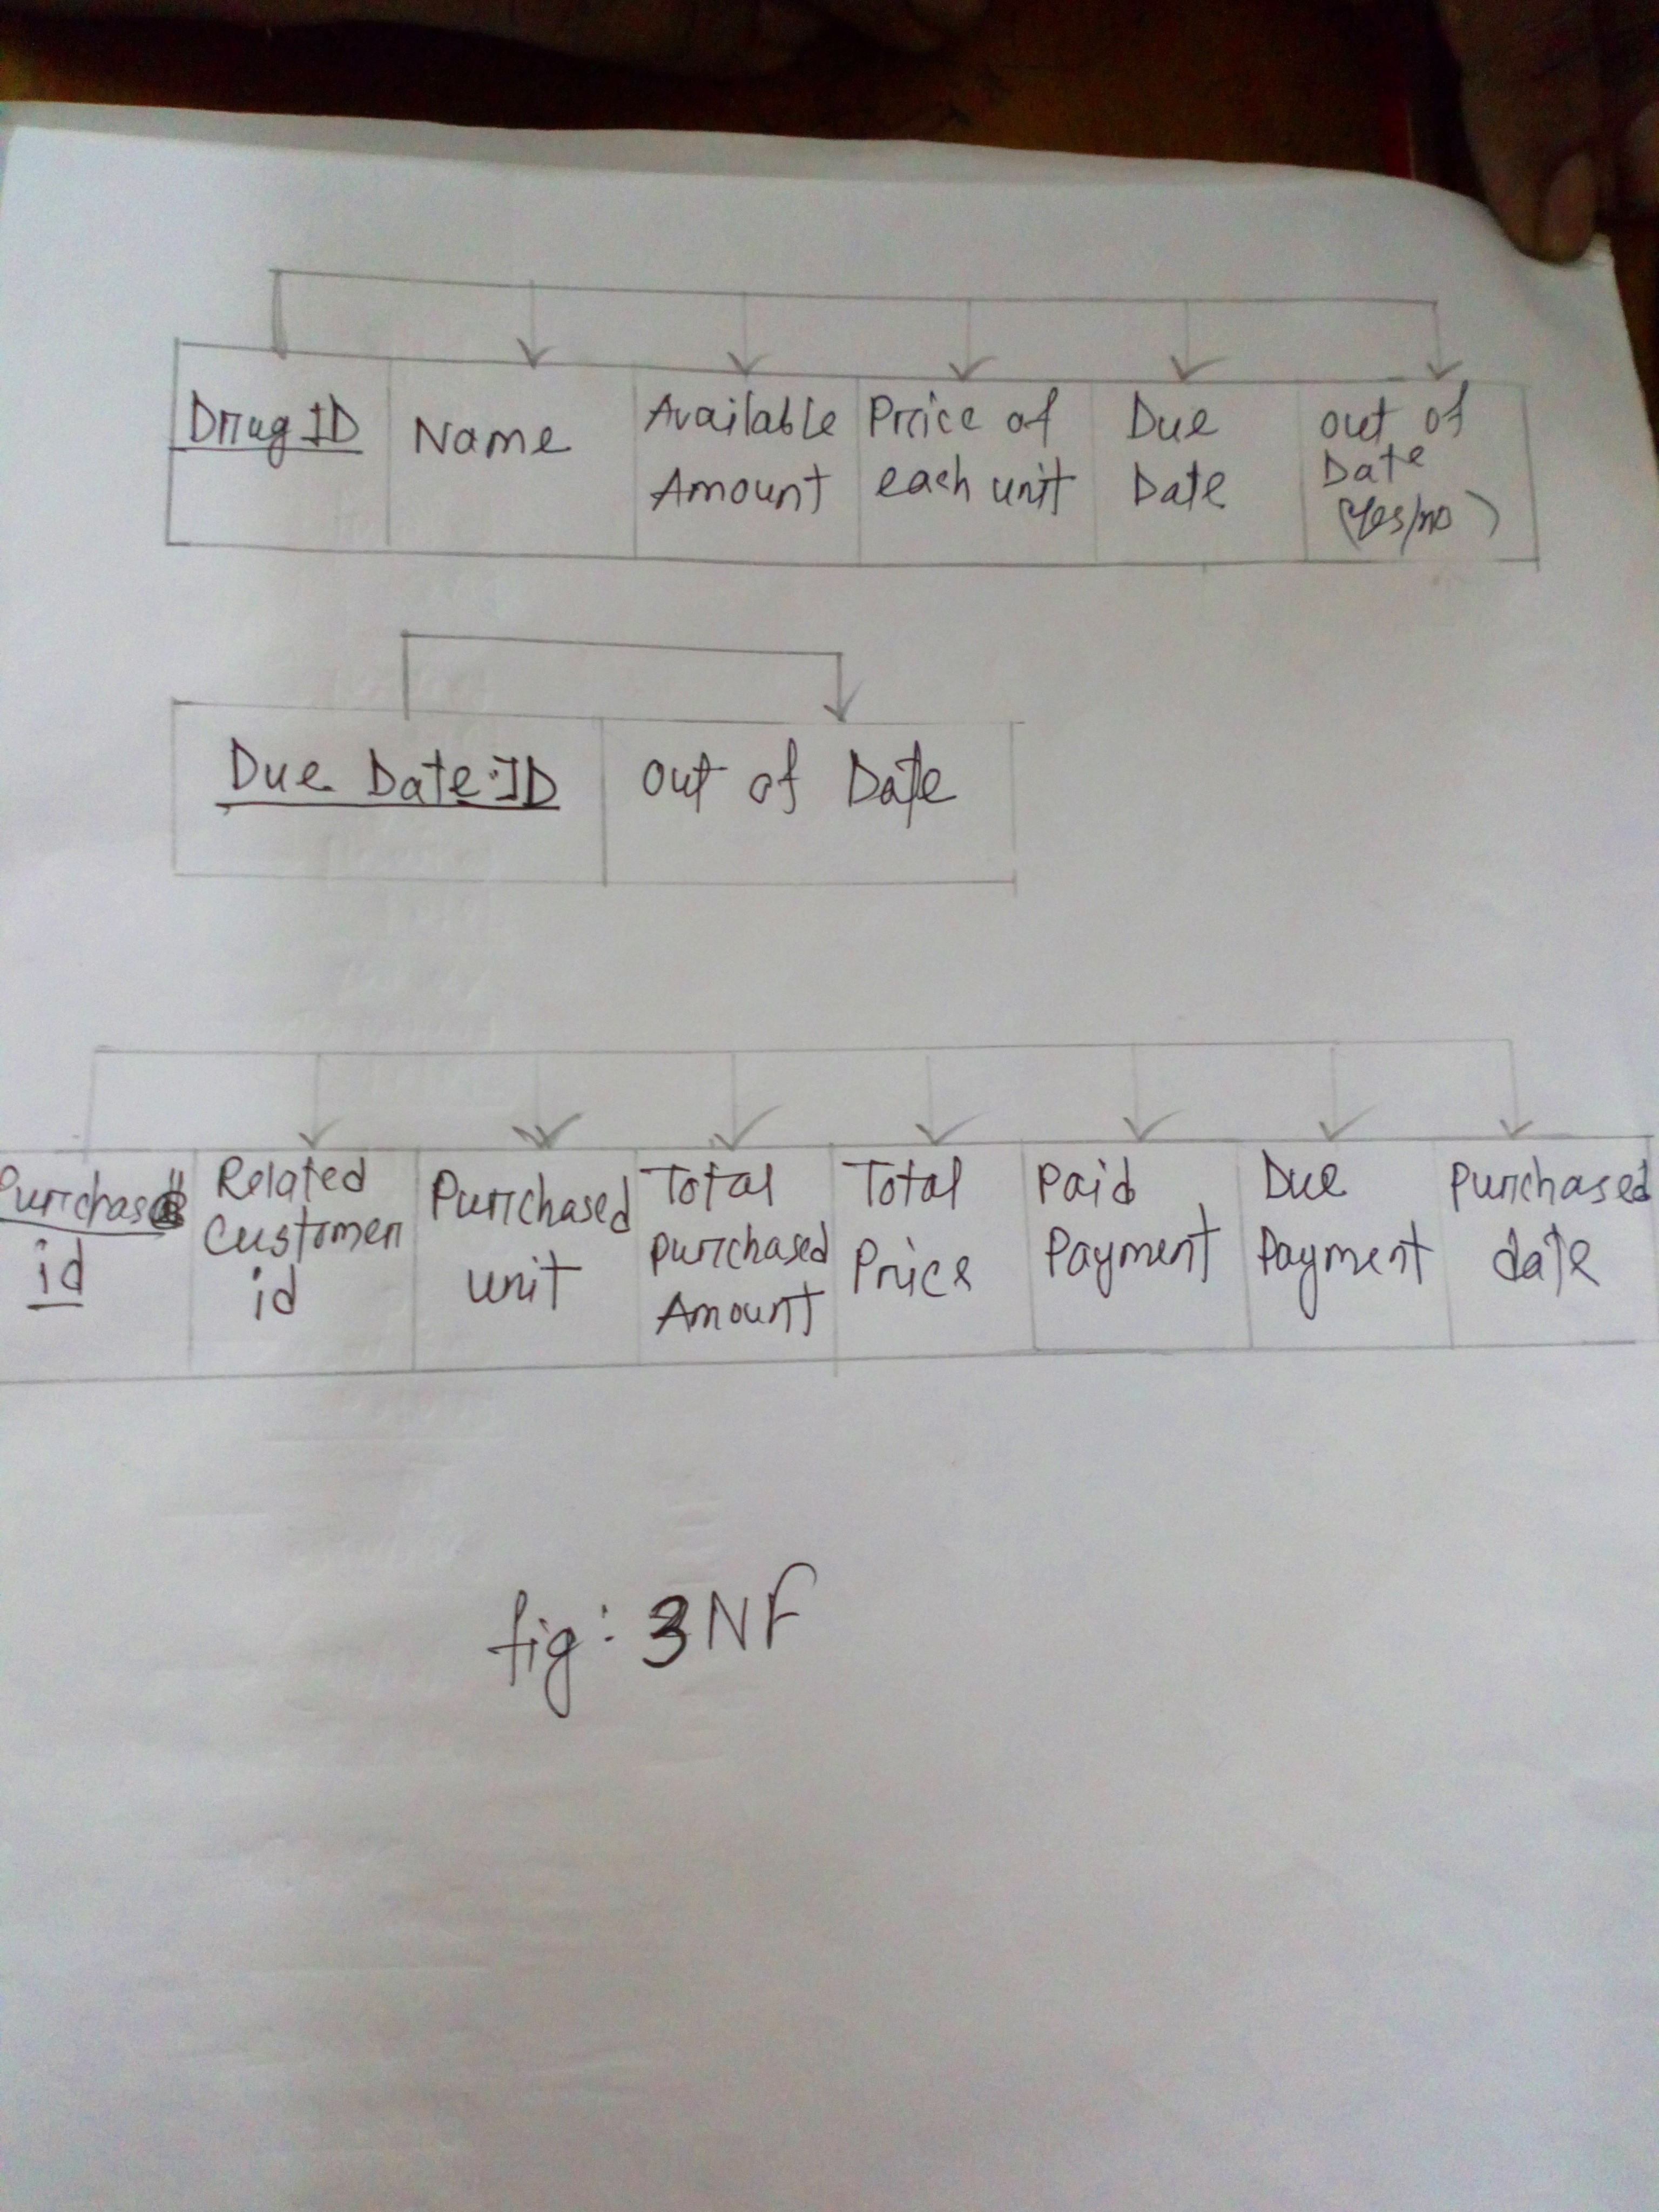 Drug ID
Name
Available
Amount
Price of
each unit
Due
Date
out of
Date
(Yes/no)
Due Date ID
out of Date
Purchased
id
Related
Customer
id
Purchased
unit
Total
purchased
Amount
Total
Price
Paid
Payment
Due
Payment
Purchased
date
fig: 3NF